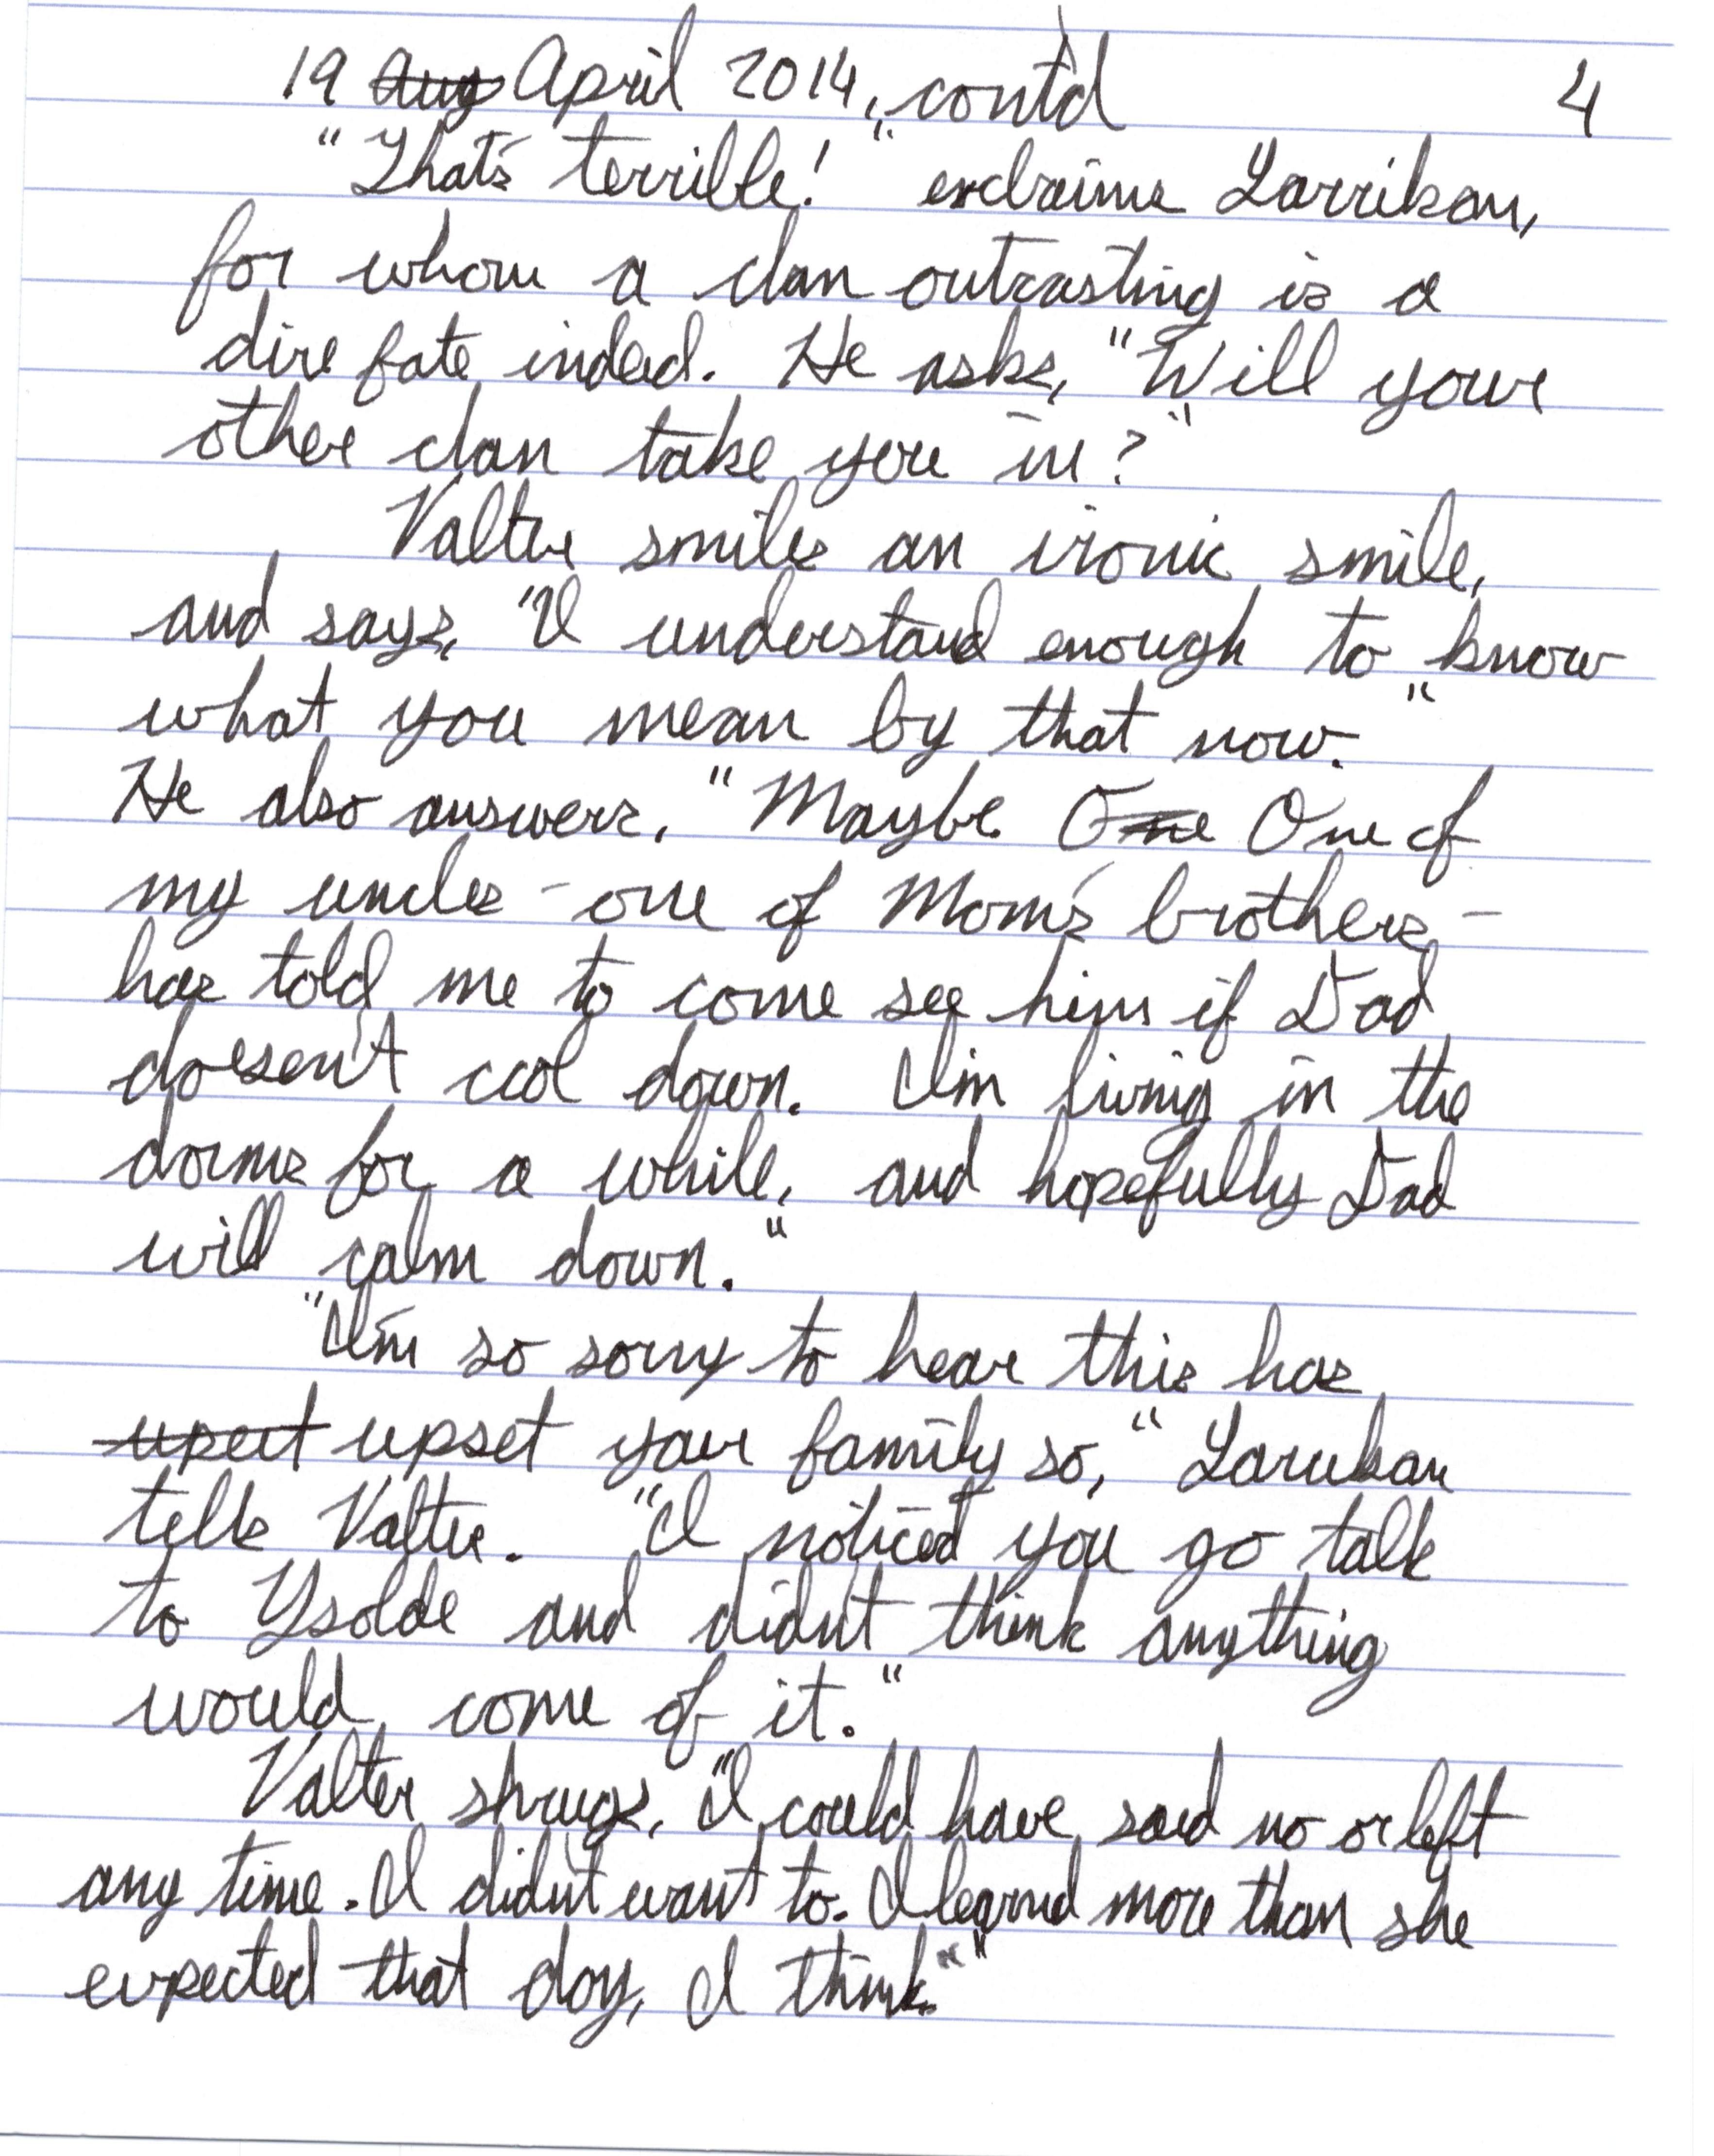 19 Aug April 2014, cont'd 4
"That's terrible!" exclaims Larrikan,
for whom a clan outcasting is a
dire fate indeed. He asks, "Will your
other clan take you in?"
Valter smiles an ironic smile,
and says, "I understand enough to know
what you mean by that now."
He also answers, "Maybe. One One of
my uncles - one of Mom's brothers -
has told me to come see him if Dad
doesen't cool down. I'm living in the
dorms for a while, and hopefully Dad
will calm down."
"I'm so sorry to hear this has
upest upset your family so," Larrikan
tells Valter. "I noticed you go talk
to Ysolde and didn't think anything
would come of it."
Valter shrugs, "I could have said no or left
any time. I didn't want to. I learned more than she
expected that day, I think."